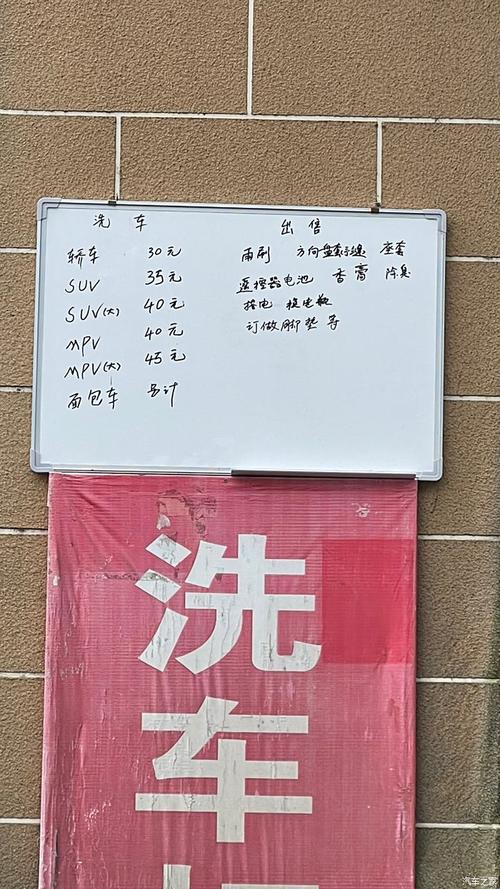 洗 车
轿车 30元
SUV 35元
SUV(大) 40元
MPV 40元
MPV(大) 45元
面包车 另计
出售
雨刷 方向盘套 座套
遥控器电池 香膏 除臭
搭电 换电瓶
订做脚垫 等
洗
车
汽车之家